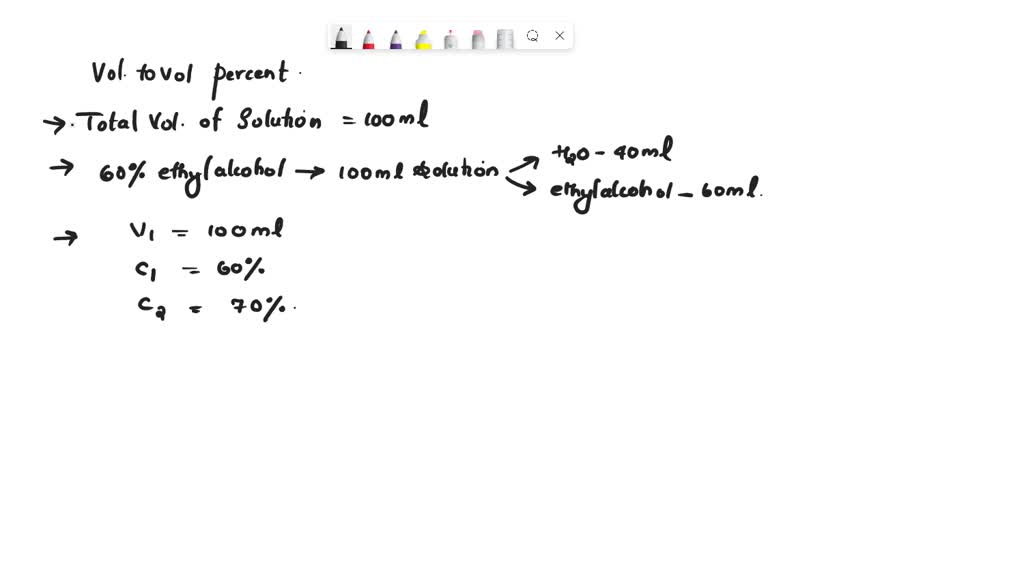 Vol. to vol percent.
→ Total Vol. of Solution = 100ml
→ 60% ethylalcohol → 100ml solution
H2O - 40ml
ethylalcohol - 60ml.
→ V1 = 100ml
C1 = 60%
C2 = 70%.